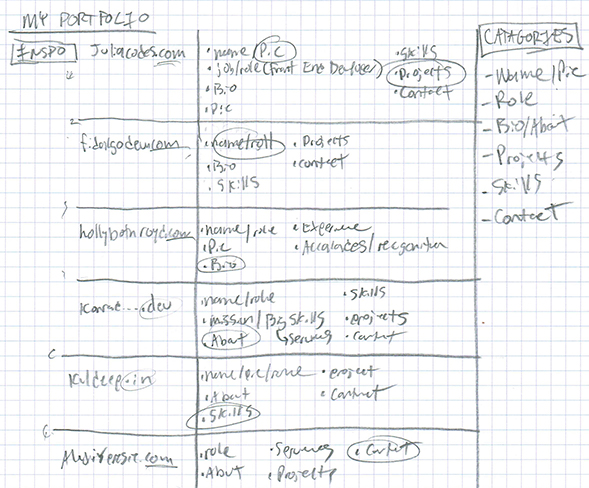 MY PORTFOLIO
INSPO
Juliacodes.com
• name Pic
• job/role (Front End Developer)
• Bio
• Pic
• Skills
• Projects
• Contact
2
• name/roll
• Bio
• Skills
• Projects
• contact
3
• name/role
• Pic
• Bio
• Experience
• Accolades/recognition
.dev
• name/role
• mission/Big Skills
• About
↳ Services
• Skills
• projects
• Contact
Kuldeep.in
• name/pic/role
• About
• Skills
• project
• Contact
6
.com
• role
• About
• Services
• Projects
• Contact
CATAGORIES
- Name/Pic
- Role
- Bio/About
- Projects
- Skills
- Contact